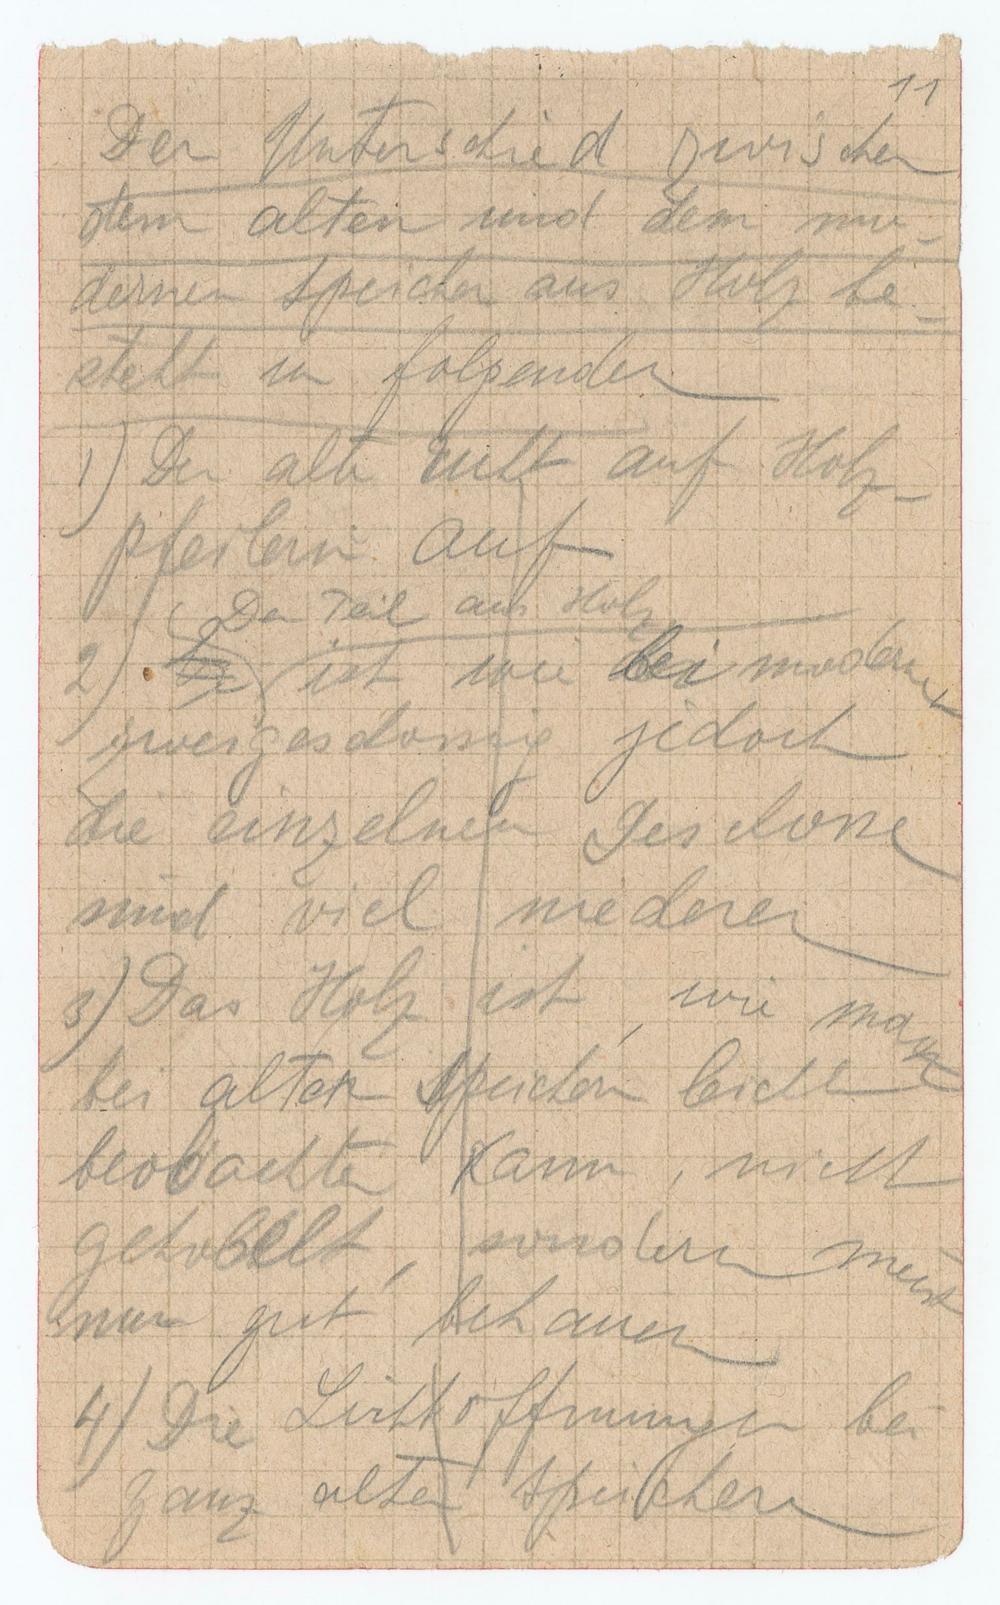 11
Der Unterschied zwischen
dem alten und dem mo-
dernen Speicher aus Holz be-
steht in folgenden
1) Der alte ruht auf Holz-
pfeilern auf
Der Teil aus Holz
2) ist wie bei modernen
zweigeschossig jedoch
die einzelnen Geschosse
sind viel niederer
3) Das Holz ist, wie man
bei alten Speichern leicht
beobachten kann, nicht
gehobelt, sondern meist
nur gut behauen
4) Die Lichtöffnungen bei
ganz alten Speichern